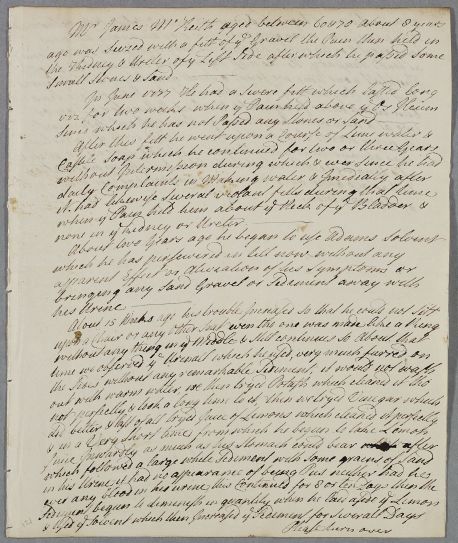 Mr James Mc Keith aged between 60 & 70 about 8 years
age was Seized with a fitt of ye Gravel the Pain then held in
the Kidney & Ureter of ye Left Side after which he passed some
Small Stones & Sand
In June 1777 He had a Severe fitt which lasted long
viz for two weeks when ye Pain held above ye Os
since which he has not Passed any Stones or Sand
After this fitt he went upon a Course of Lime water &
Castile Soap which he continued for two or three Years
without Intermission during which & ever since he had
daily Complaints in Making water & Gradually after
it had likewise Several violent fitts during that time
when ye Pain held him about ye Neck of ye Bladder &
non in ye Kidney or Ureter
About two Years ago he began to use Adams Solvent
which he has persevered in till now without any
apparent Effect or Alleviation of his Symptoms or
bringing any Sand Gravel or Sediment away with
his Urine
About 15 Weeks ago his trouble Increased So that he could not Sitt
upon a Chair or any other Seat even tho one was made like a Ring
without any thing in ye Middle & Still continues So About that
time we observed ye Urinall which he used, very much furred on
the Sides without any remarkable Sediment, it would not wash
out with warm water, we then tryed Potash which cleaned it tho
not perfectly & took a long time to it, then we tryed Vinegar which
did better & last of all tryed Juce of Lemons which cleaned it perfectly
& in a Very Short time from which he began to take Lemon
Juce Inwardly as much as his Stomach could bear after
which followed a large white Sediment with Some grains of Sand
in his Urine it had no appearance of being Puss neither had he
ever any blood in his urine this Continued for 8 or ten Days then the
Sediment began to diminish in quantity when he laid aside ye Lemon
& Used ye Solvent which then Increased ye Sediment for Severall Days
Please turn over